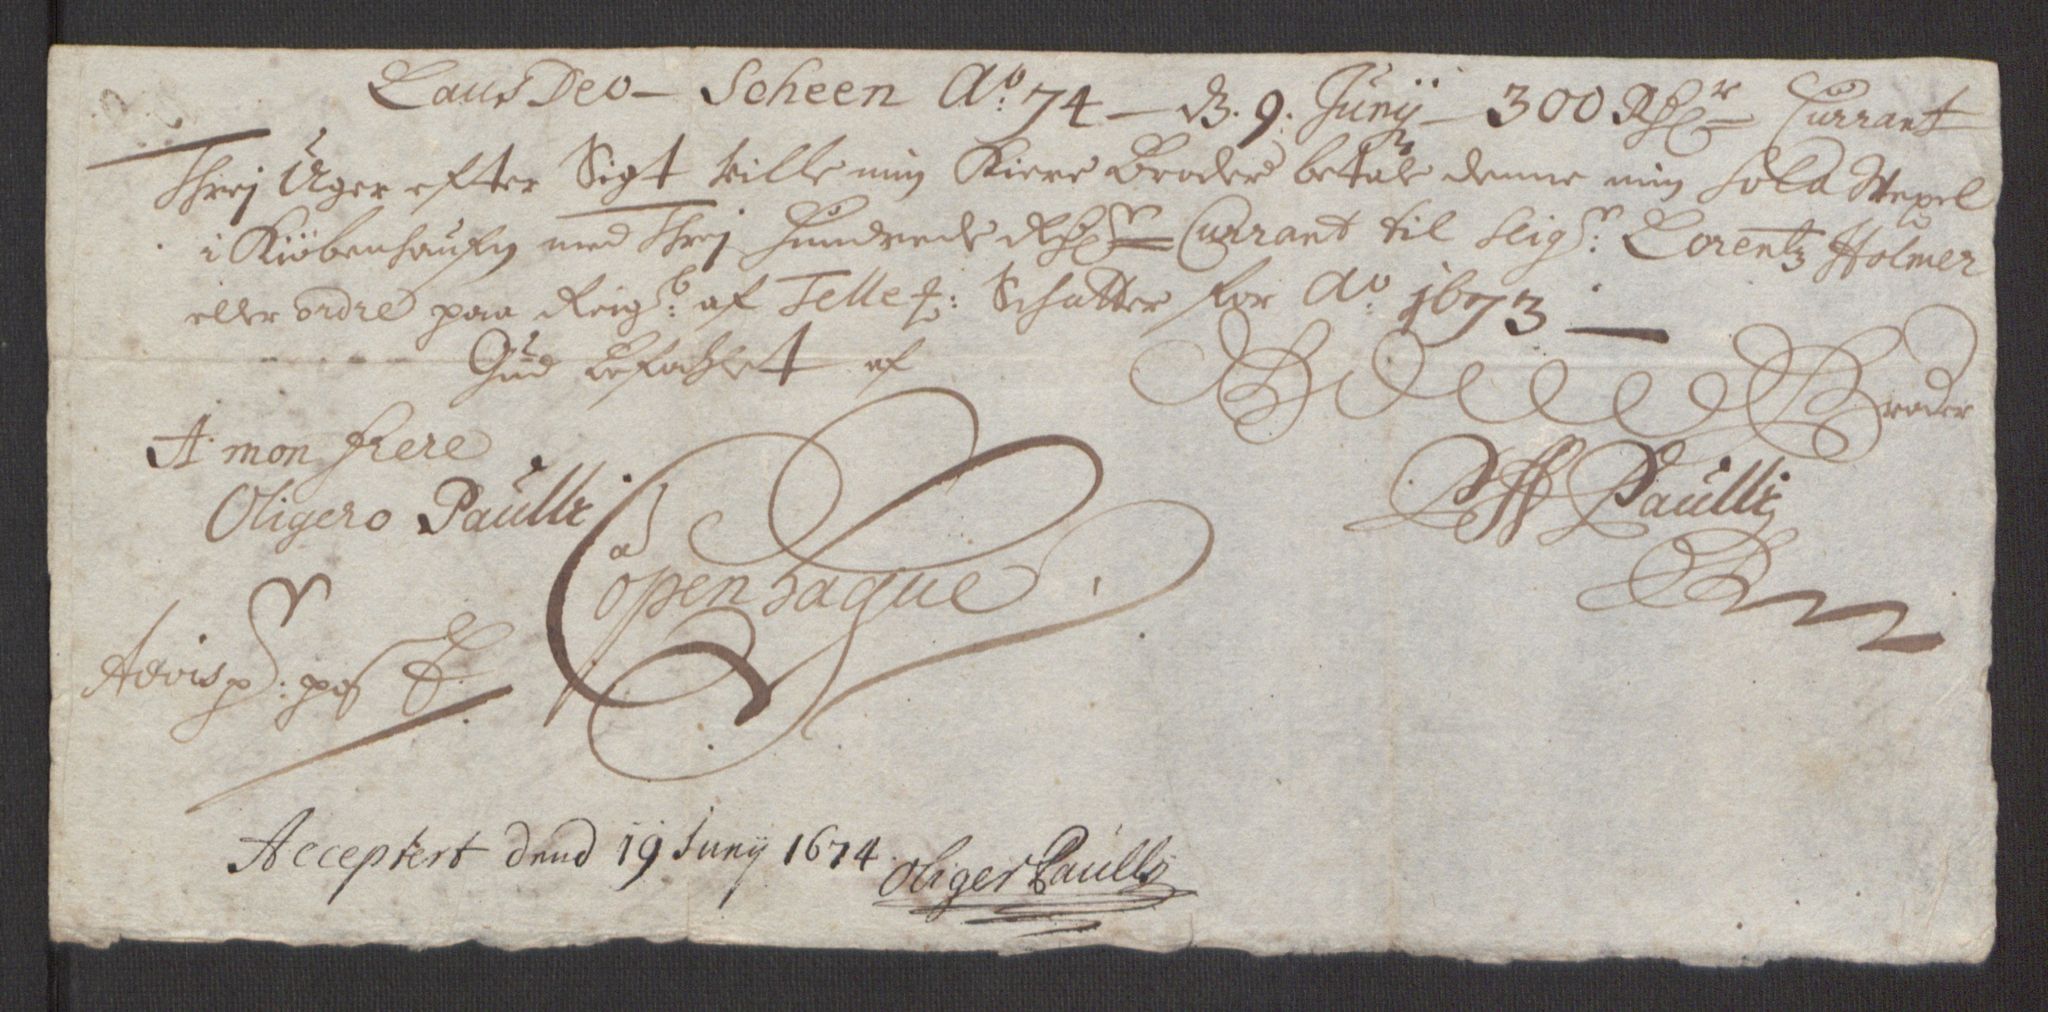 Laus Deo - Scheen Ao: 74 - d. 9: Junij - 300 Rdr Currant
Threj Uger efter Sigt wille min Kiere Broder betale denne min Sola Wexel
i Kiøbenhaufn med threj Hundrede Rdr Currant til Seigr: Lorentz Holmer
eller ordre paa Reigb: af Telle: Schatter for Ao: 1673
Gud befahlet af
Broder
A mon frere
Oligero Paulli
Paulli
a
Copenhague
Advis pr: post
Acceptert dend 19 Junij 1674 Oliger Paulli